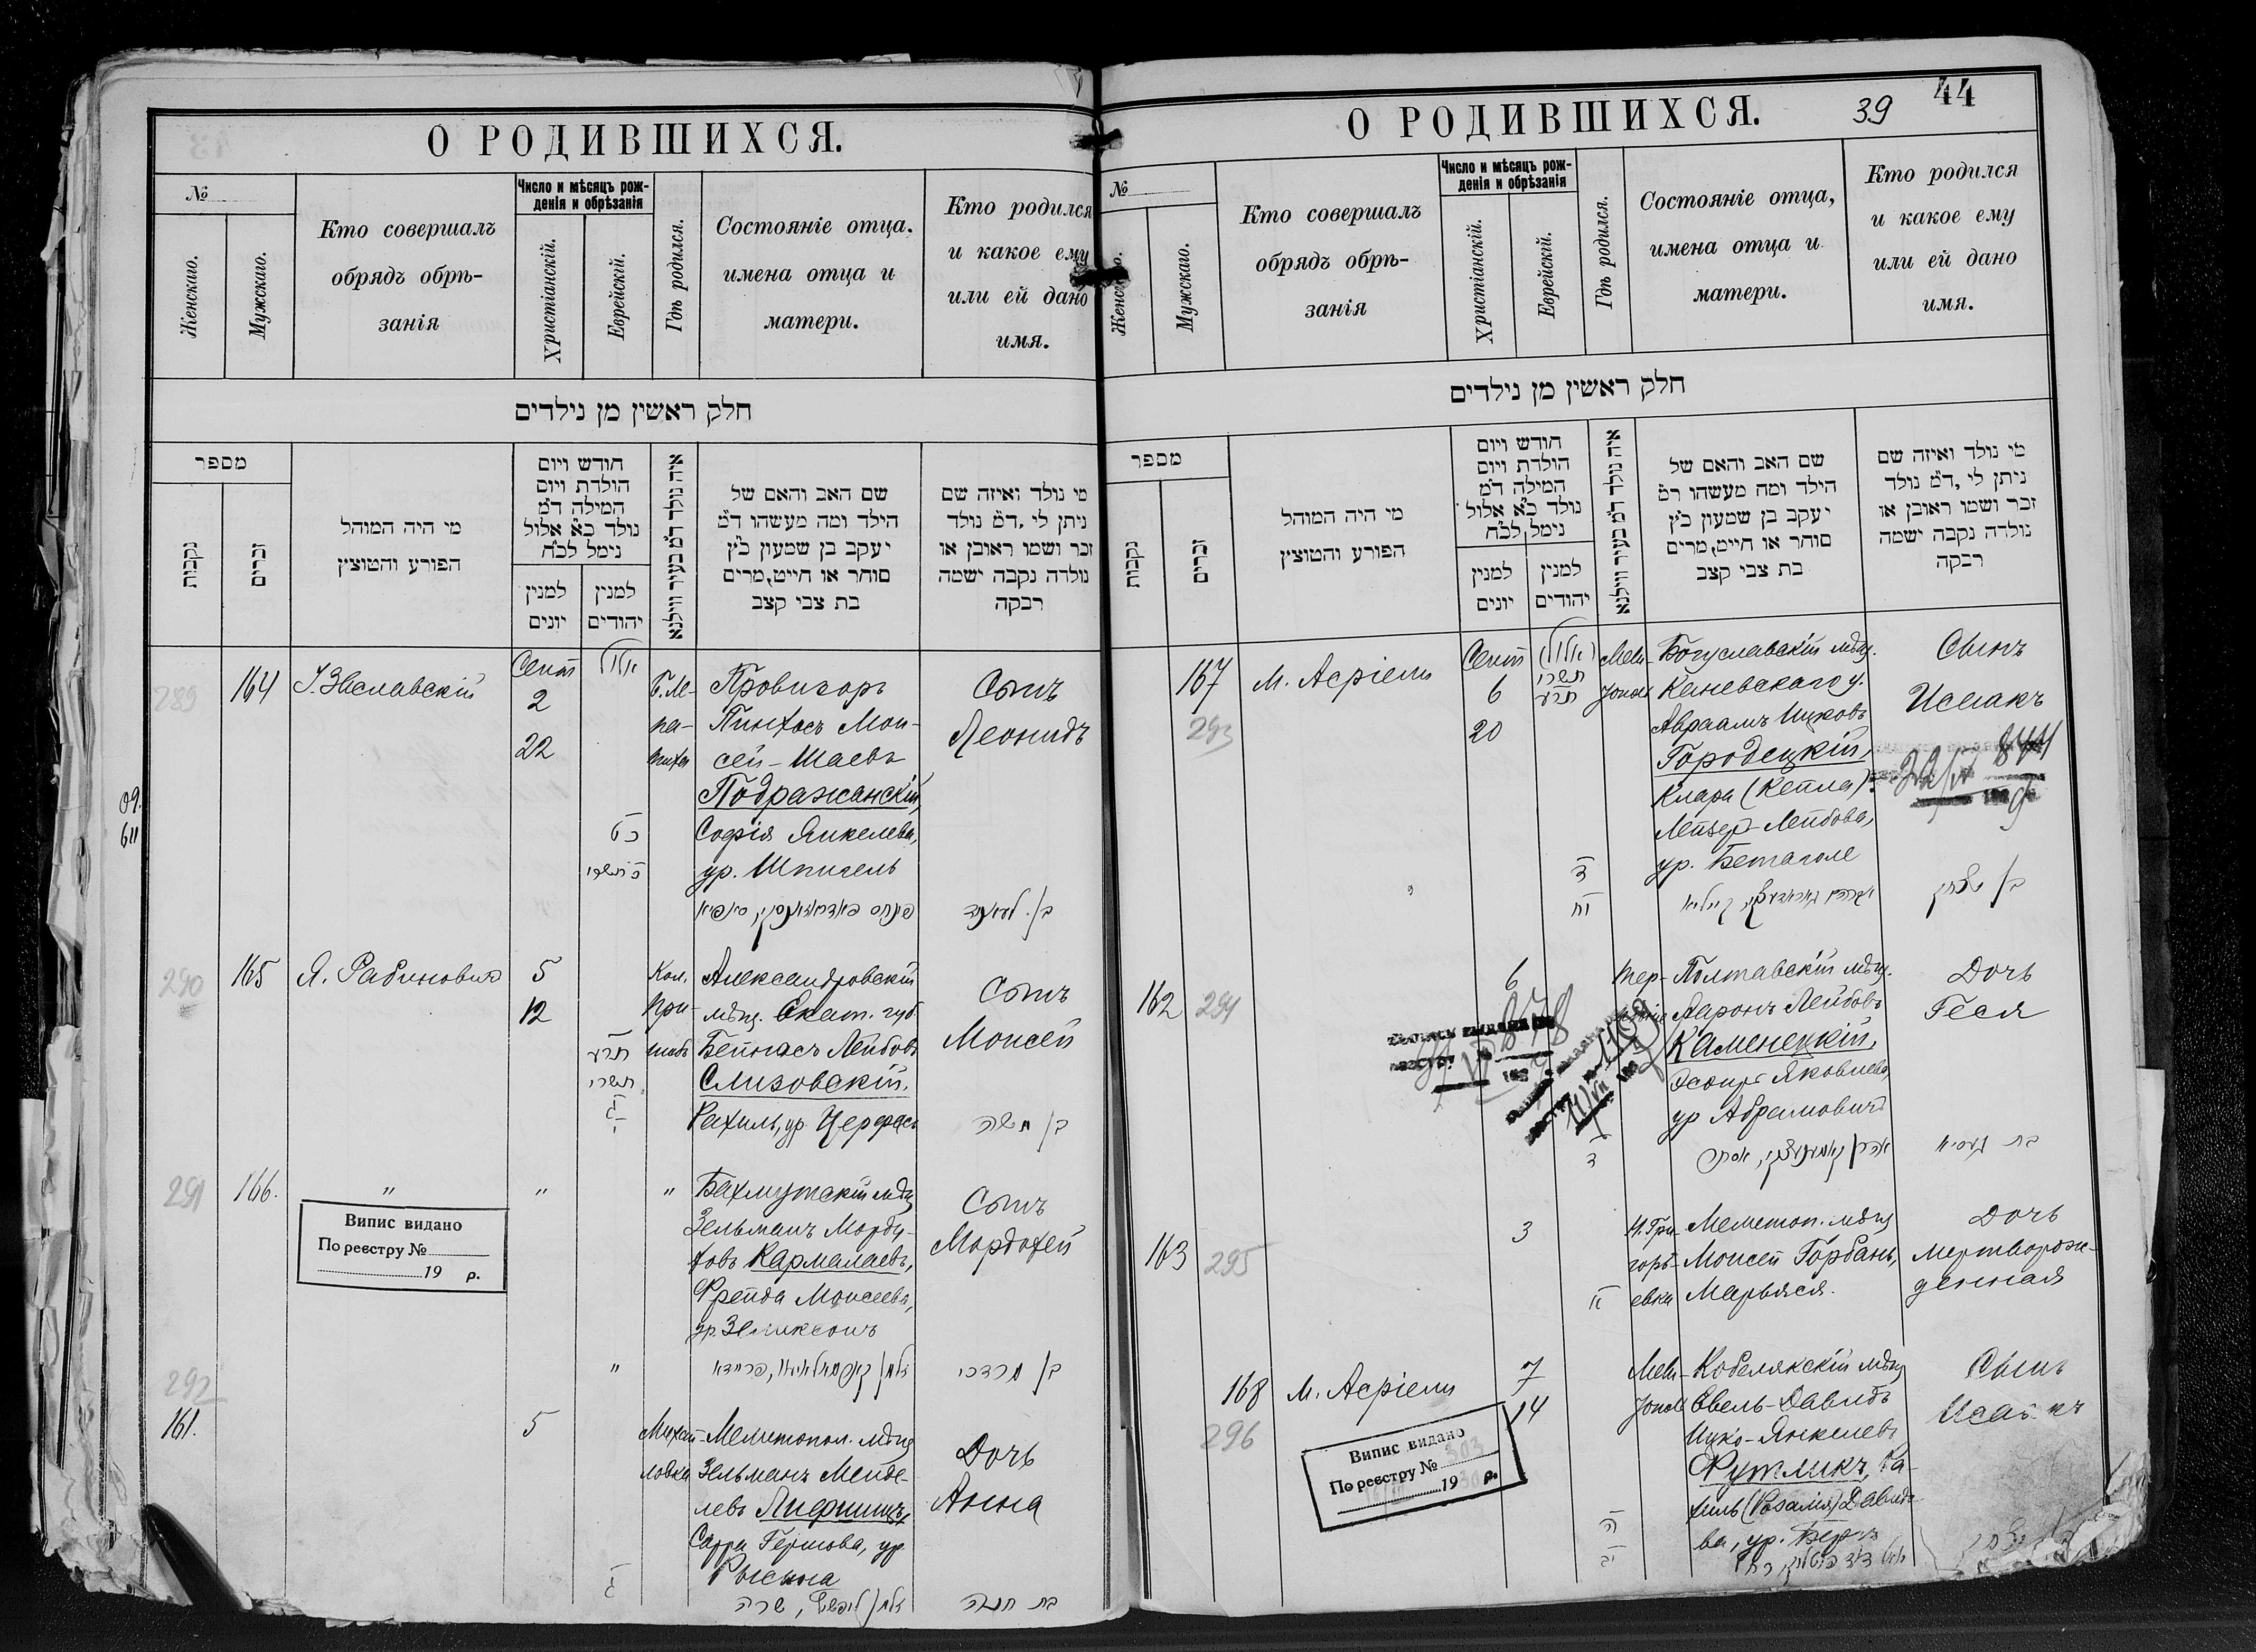 О РОДИВШИХСЯ.
№
Женскаго.
Мужскаго.
Кто совершалъ
обрядъ обрѣ-
занія
Число и мѣсяцъ рож-
денія и обрѣзанія
Христіанскій.
Еврейскій.
Гдѣ родился.
Состояніе отца.
имена отца и
матери.
Кто родился
и какое ему
или ей дано
имя.
חלק ראשין מן נילדים
מספר
נקבות
זכרים
מי היה המוהל
הפורע והמוצץ
חודש ויום
הולדת ויום
המילה ד״מ
נולד כ״א אלול
נימל לכ״ח
למנין
יונים
למנין
יהודים
איה נולד ד״מ בעיר ווילנא
שם האב והאם של
הילד ומה מעשהו ד״מ
יעקב בן שמעון כ״ץ
סוחר או חייט, מרים
בת צבי קצב
מי נולד ואיזה שם
ניתן לי, ד״מ נולד
זכר ושמו ראובן או
נולדה נקבה ישמה
רבקה
289
164
Сент
2
22
אלול
Провизоръ
Пинхосъ Мои-
сей-Шаевъ
Подражанскій,
Софія Янкелева,
ур. Шпигель
Сынъ
Леонидъ
09.
611
290
165
Я. Рабиновичъ
5
12
תרע
תשרי
Кол.
При-
шибъ
Александровскій
мѣщ. Екат. губ.
Бейнасъ Лейбовъ
Слизовскій.
Рахиль, ур. Церфасъ
Сынъ
Моисей
בן משה
291
166.
"
"
"
Випис видано
По реєстру №
19 р.
Бахмутскій мѣщ
Зельманъ Морду-
ховъ Кармалаевъ,
Фрейда Моисеева,
Сынъ
Мордохей
בן מרדכי
292
161.
5
Михай-
ловка
Мелитопол. мѣщ
Зельманъ Менде-
левъ Лифшицъ,
Сарра Гершова, ур.
Рыскина
Дочь
Анна
בת חנה
О РОДИВШИХСЯ.
39
44
№
Женскаго.
Мужскаго.
Кто совершалъ
обрядъ обрѣ-
занія
Число и мѣсяцъ рож-
денія и обрѣзанія
Христіанскій.
Еврейскій.
Гдѣ родился.
Состояніе отца,
имена отца и
матери.
Кто родился
и какое ему
или ей дано
имя.
חלק ראשין מן נילדים
מספר
נקבות
זכרים
מי היה המוהל
הפורע והמוצץ
חודש ויום
הולדת ויום
המילה ד״מ
נולד כ״א אלול
נימל לכ״ח
למנין
יונים
למנין
יהודים
איה נולד ד״מ בעיר ווילנא
שם האב והאם של
הילד ומה מעשהו ד״מ
יעקב בן שמעון כ״ץ
סוחר או חייט, מרים
בת צבי קצב
מי נולד ואיזה שם
ניתן לי, ד״מ נולד
זכר ושמו ראובן או
נולדה נקבה ישמה
רבקה
167
293
М. Асріели
Сент
6
20
תשרי
תרע
Мели-
Богуславскій мѣщ.
Каневскаго у.
Авраамъ Ицковъ
Городецкій,
Клара (Кейла)
Лейзер-Лейбова,
Сынъ
Исаакъ
בן יצחק
162
294
6
Полтавскій мѣщ.
Ааронъ Лейбовъ
Каменецкій,
Эсѳирь Яковлева,
ур Абрамовичъ
Дочь
Геся
163
295
3
Н. Гри-
горь-
евка
Мелитоп. мѣщ
Моисей Горбань,
Марьяся.
Дочь
мертворож-
денная
168
296
М. Асріели
7
14
Випис видано
По реєстру № 303
19 30 р.
Мели-
Кобелякскій мѣщ
Евель-Давидъ
Ицко-Янкелевъ
Футликъ, Ра-
хиль (Розалія) Давидо-
ва, ур.
Сынъ